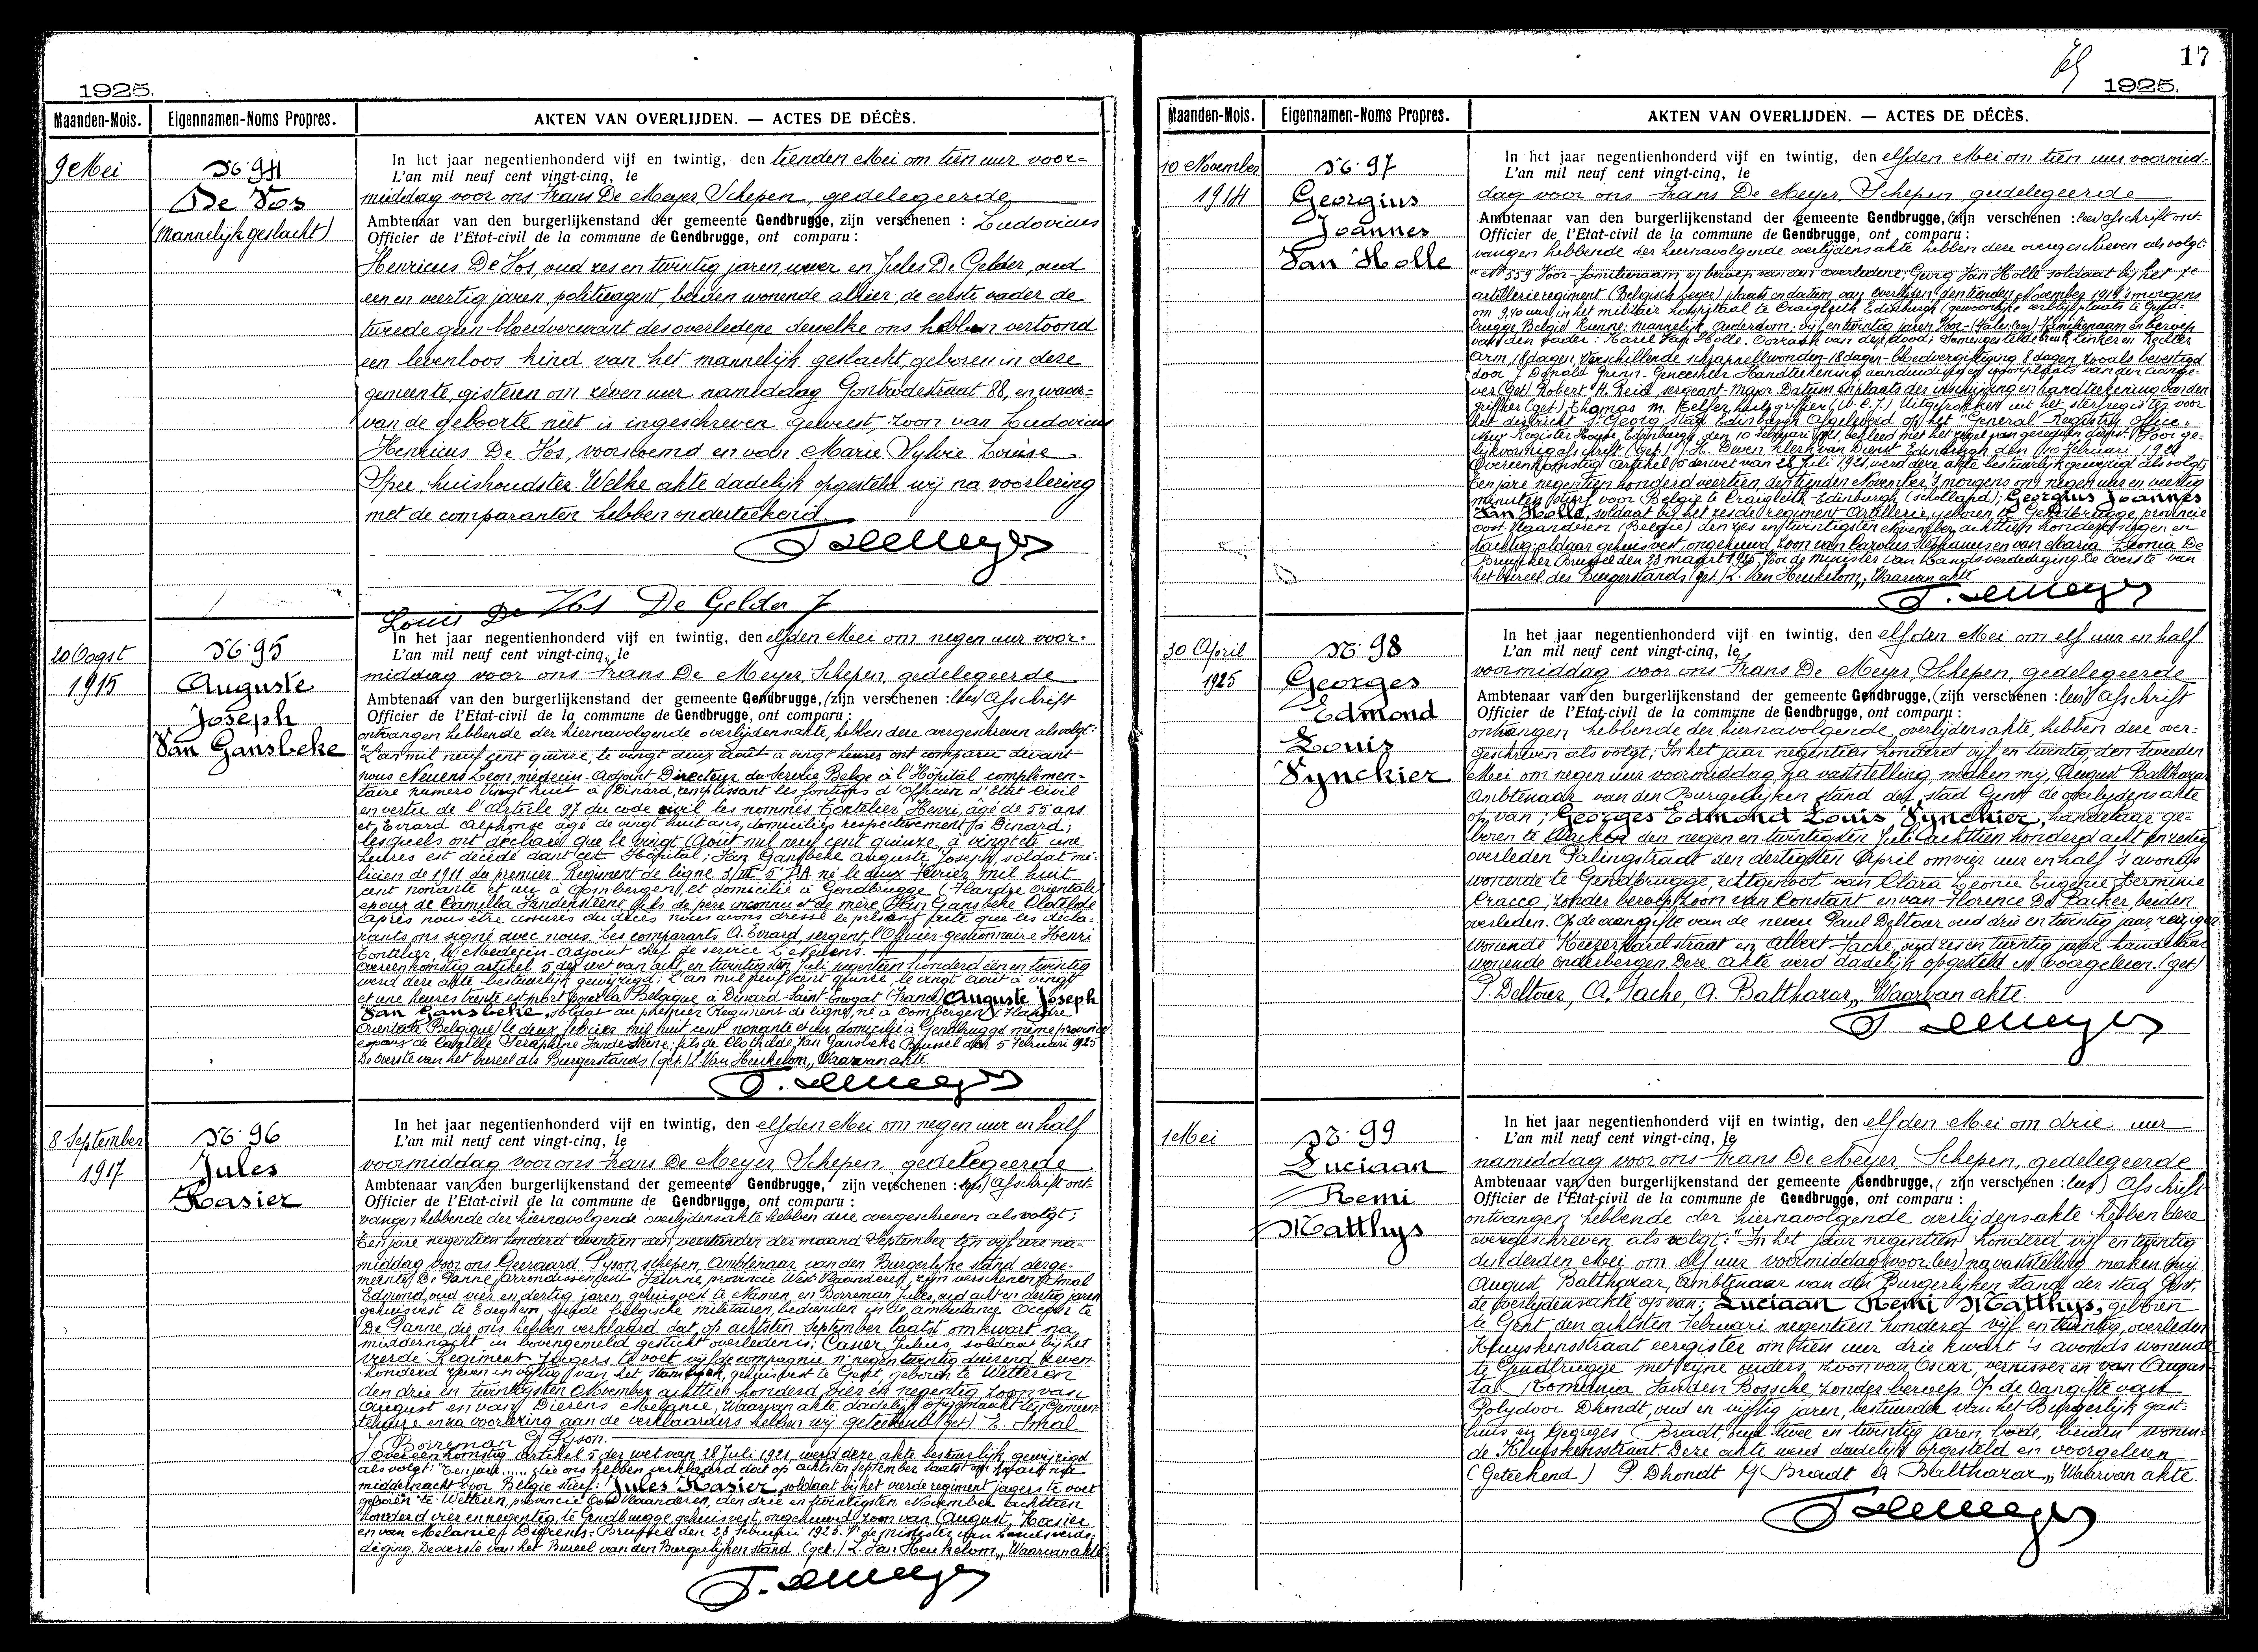 1925.
Maanden-Mois. Eigennamen-Noms Propres. AKTEN VAN OVERLIJDEN. — ACTES DE DÉCÈS.
9 Mei
No 94
De Vos
(mannelijk geslacht)
In het jaar negentienhonderd vijf en twintig, den tienden Mei om tien uur voor-
L'an mil neuf cent vingt-cinq, le
middag voor ons Frans De Meyer, Schepen, gedelegeerde
Ambtenaar van den burgerlijkenstand der gemeente Gendbrugge, zijn verschenen : Ludovicus
Officier de l'Etat-civil de la commune de Gendbrugge, ont comparu :
Henricus De Vos, oud zes en twintig jaren, wever en Jules De Gelder, oud
een en veertig jaren, politieagent, beiden wonende alhier, de eerste vader de
tweede geen bloedverwant des overledene dewelke ons hebben vertoond
een levenloos kind van het mannelijk geslacht, geboren in deze
gemeente, gisteren om zeven uur namiddag Gontrodestraat 88, en waar-
van de geboorte niet is ingeschreven geweest, zoon van Ludovicus
Henricus De Vos, voornoemd en van Marie Sylvie Louise
Spee, huishoudster. Welke akte dadelijk opgesteld wij na voorlezing
met de comparanten hebben onderteekend
Louis De Vos De Gelder J
20 Oogst
1915
No 95
Auguste
Joseph
Van Gansbeke
In het jaar negentienhonderd vijf en twintig, den elfden Mei om negen uur voor-
L'an mil neuf cent vingt-cinq, le
middag voor ons Frans De Meyer, Schepen, gedelegeerde
Ambtenaar van den burgerlijkenstand der gemeente Gendbrugge, (zijn verschenen : lees) Afschrift
Officier de l'Etat-civil de la commune de Gendbrugge, ont comparu :
ontvangen hebbende der hiernavolgende overlijdensakte, hebben deze overgeschreven als volgt:
"L'an mil neuf cent quinze, le vingt deux août à vingt heures ont comparu devant
nous Neuens Léon, médecin-Adjoint Directeur du Service Belge à l'Hôpital complémen-
taire numéro Vingt huit à Dinard, remplissant les fontions d'Officier d'Etat Civil
en vertu de l'Article 97 du code civil les nommés Contelier Henri, âgé de 55 ans
et, Evrard Alphonse âgé de vingt huit ans, domiciliés respectivement à Dinard;
lesquels ont déclaré que le vingt Août mil neuf cent quinze, à vingt et une
heures est décédé dans cet Hôpital; Van Gansbeke Auguste Joseph, soldat mi-
licien de 1911 du premier Régiment de ligne né le deux Février mil huit
cent nonante et un à Oombergen, et domicilié à Gendbrugge (Flandre orientale)
époux de Camilla Vandensteene fils de père inconnu et de mère Van Gansbeke Clotilde
Après nous être assurés du décès nous avons dressé le présent acte que les décla-
rants ons signé avec nous. Les comparants A. Evrard, sergent, l'Officier-gestionnaire Henri
Contelier, le Médecin-Adjoint chef de service L. Neuens.
Overeenkomstig artikel 5 der wet van acht en twintigsten Juli negentien honderd een en twintig
werd deze akte bestuurlijk gewijzigd; L'an mil neuf cent quinze, le vingt Août à vingt
et une heures trente, est mort pour la Belgique à Dinard-Saint-Enogat (France) Auguste Joseph
Van Gansbeke, soldat au premier Régiment de ligne, né à Oombergen (Flandre
Orientale Belgique) le deux février mil huit cent nonante et un, domicilié à Gendbrugge même province
époux de Camille Séraphine Vande Steene; fils de Clothilde Van Gansbeke Brussel den 5 Februari 1925
De overste van het bureel des Burgerstands (get.) L. Van Heukelom,, Waarvan akte.
8 September
1917
No 96
Jules
Kasier
In het jaar negentienhonderd vijf en twintig, den elfden Mei om negen uur en half
L'an mil neuf cent vingt-cinq, le
voormiddag voor ons Frans De Meyer, Schepen, gedelegeerde
Ambtenaar van den burgerlijkenstand der gemeente Gendbrugge, zijn verschenen : lees) Afschrift ont-
Officier de l'Etat-civil de la commune de Gendbrugge, ont comparu :
vangen hebbende der hiernavolgende overlijdensakte hebben deze overgeschreven als volgt;
Ten jare negentien honderd zeventien den veertienden der maand September ten vijf ure na-
middag voor ons Geeraard Pyson, schepen Ambtenaar van den Burgerlijke stand derge-
meente De Panne, arrondissement Veurne, provincie West-Vlaanderen, zijn verschenen: Smal
Edmond, oud vier en dertig jaren, gehuisvest te Namen, en Borreman Jules, oud acht en dertig jaren
gehuisvest te Edeghem, beide belgische militairen, bedienden in de ambulance Ocean te
De Panne, die ons hebben verklaard dat op achtsten September laatst om kwart na
middernacht in bovengemeld gesticht overleden is; Casier Julius, soldaat bij het
vierde Regiment Jagers te voet vijfde compagnie, n° negentwintig duizend zeven
honderd zeven en vijftig van het stamboek, gehuisvest te Gent, geboren te Wetteren
den drie en twintigsten November achttien honderd vier en negentig, zoon van
August en van Dierens Melanie, Waarvan akte dadelijk opgemaakt te Gemeen-
tehuize en na voorlezing aan de verklaarders hebben wij geteekend (get) E. Smal
J. Borreman G Pyson.
Overeenkomstig artikel 5 der wet van 28 Juli 1921, werd deze akte bestuurlijk gewijzigd
als volgt: "Ten jare..... die ons hebben verklaard dat op achtsten September laatst om kwart na
middernacht voor België stierf: Jules Kasier, soldaat bij het vierde regiment jagers te voet
geboren te Wetteren, provincie Oost Vlaanderen, den drie en twintigsten November achttien
honderd vier en negentig, te Gendbrugge gehuisvest, ongehuwd zoon van August Kasier
en van Melanie Dierens. Brussel den 23 Februari 1925. Vr de minister van Landsverde-
diging. De overste van het Bureel van den Burgerlijken stand. (get.) L. Van Heukelom,, Waarvan akte
17
1925.
Maanden-Mois. Eigennamen-Noms Propres. AKTEN VAN OVERLIJDEN. — ACTES DE DÉCÈS.
10 November
1914
No 97
Georgius
Joannes
Van Holle
In het jaar negentienhonderd vijf en twintig, den elfden Mei om tien uur voormid-
L'an mil neuf cent vingt-cinq, le
dag voor ons Frans De Meyer, Schepen, gedelegeerde
Ambtenaar van den burgerlijkenstand der gemeente Gendbrugge, (zijn verschenen : lees) afschrift ont-
Officier de l'Etat-civil de la commune de Gendbrugge, ont comparu :
vangen hebbende der hiernavolgende overlijdensakte hebben deze overgeschreven als volgt:
"No 559 Voor- familienaam, beroep van den overledene; Georg Van Holle soldaat bij het
artillerieregiment (Belgisch leger) plaats en datum van overlijden, den tienden November 1914 's morgens
om 9,40 uur, in het militair hospitaal te Craigleith Edinburgh (gewoonlijke verblijfplaats te Gend-
brugge, België Kunne; mannelijk, Ouderdom; vijf en twintig jaren, Voor- Familienaam en beroep
van den vader: Karel Van Holle. Oorzaak van den dood; linker en Rechter
arm, 18 dagen, verschillende schrapnellwonden 18 dagen-bloedvergiftiging 8 dagen, zooals bevestigd
door J. Donald Geneesheer Handteekening aanduiding en woonplaats van den aange-
ver (get) Robert H. Reid, sergeant-Major. Datum en plaats der inschrijving en handteekening van den
griffier (get.) Thomas M. hulpgriffier Uitgetrokken uit het sterfregister voor
het district St Georg, stad Edinburgh Afgeleverd op het "General Registry Office,
New Register House, Edinburgh, den 10 Februari 1921, bekleed met het zegel van gezegden dienst. Voor ge-
lijkvormig afschrift (get.) H. klerk van Dienst Edinburgh den 10 Februari 1921
Overeenkomstig artikel 5 der wet van 28 Juli 1921, werd deze akte bestuurlijk gewijzigd als volgt;
Ten jare negentien honderd veertien, den tienden November 's morgens om negen uur en veertig
minuten stierf voor België te Craigleith-Edinburgh (Schotland); Georgius Joannes
Van Holle, soldaat bij het zesde regiment Artillerie, geboren te Gendbrugge, provincie
Oost-Vlaanderen (België) den zes en twintigsten November achttien honderd negen en
tachtig; aldaar gehuisvest, ongehuwd, zoon van Carolus Stephanus en van Maria Leonia De
Bruycker Brussel den 23 maart 1925, Voor de minister van Landsverdediging De Overste van
het bureel des Burgerstands (get.) L. Van Heukelom,, Waarvan akte
30 April
1925
No 98
Georges
Edmond
Louis
Vynckier
In het jaar negentienhonderd vijf en twintig, den elfden Mei om elf uur en half
L'an mil neuf cent vingt-cinq, le
voormiddag voor ons Frans De Meyer, Schepen, gedelegeerde
Ambtenaar van den burgerlijkenstand der gemeente Gendbrugge, (zijn verschenen : lees) Afschrift
Officier de l'Etat-civil de la commune de Gendbrugge, ont comparu :
ontvangen hebbende der hiernavolgende overlijdensakte, hebben deze over-
geschreven als volgt; In het jaar negentien honderd vijf en twintig, den tweeden
Mei om negen uur voormiddag na vaststelling maken mij, August Balthazar
Ambtenaar van den Burgerlijken stand der stad Gent de overlijdensakte
op van; Georges Edmond Louis Vynckier, handelaar, ge-
boren te den negen en twintigsten Juli achttien honderd acht en zestig
overleden Palingstraat den dertigsten April om vier uur en half 's avonds
wonende te Gendbrugge, echtgenoot van Clara Leonie Eugenie Herminie
Cracco, zonder beroep, zoon van Constant en van Florence De Backer, beiden
overleden. Op de aangifte van de neven Paul Deltour, oud drie en twintig jaar, reiziger
wonende Keizer Karelstraat en Albert Tache, oud zes en twintig jaar handelaar
wonende Onderbergen Deze akte werd dadelijk opgesteld en voorgelezen. (get)
P. Deltour, A. Tache, A. Balthazar,, Waarvan akte.
1 Mei
No 99
Luciaan
Remi
Matthys
In het jaar negentienhonderd vijf en twintig, den elfden Mei om drie uur
L'an mil neuf cent vingt-cinq, le
namiddag voor ons Frans De Meyer, Schepen, gedelegeerde
Ambtenaar van den burgerlijkenstand der gemeente Gendbrugge, (zijn verschenen : lees) Afschrift
Officier de l'Etat-civil de la commune de Gendbrugge, ont comparu :
ontvangen hebbende der hiernavolgende overlijdensakte hebben deze
overgeschreven als volgt: "In het jaar negentien honderd vijf en twintig
den derden Mei om elf uur voormiddag (voor lees) na vaststelling maken wij
August Balthazar, Ambtenaar van den Burgerlijken stand der stad Gent.
de overlijdensakte op van: Luciaan Remi Matthys, geboren
te Gent den achtsten Februari negentien honderd vijf en twintig, overleden
Kluyskensstraat eergister om tien uur drie kwart 's avonds wonende
te Gendbrugge met zijne ouders, zoon van Oscar, vernisser en van Augus-
ta Romania Vanden Bossche, zonder beroep Op de aangifte van
Polydoor Dhondt, oud en vijftig jaren, bestuurder van het Burgerlijk gast-
huis en Georges Bradt, oud twee en twintig jaren, bode, beiden wonen-
de Kluyskensstraat Deze akte werd dadelijk opgesteld en voorgelezen
(Geteekend) P. Dhondt G Bradt A Balthazar,, Waarvan akte.